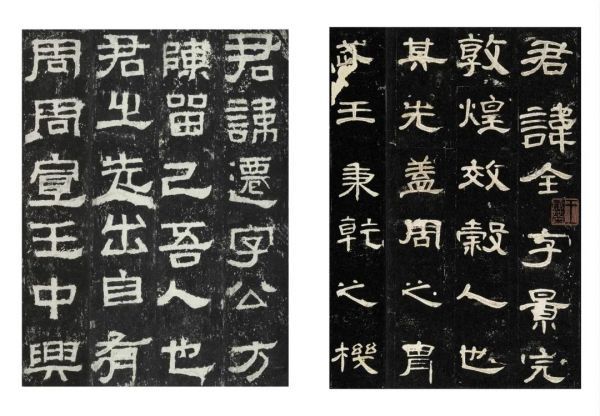 君諱遷字公方
陳留己吾人也
君之先出自有
周周宣王中興
君諱全字景完
敦煌效穀人也
其先蓋周之胄
武王秉乾之機